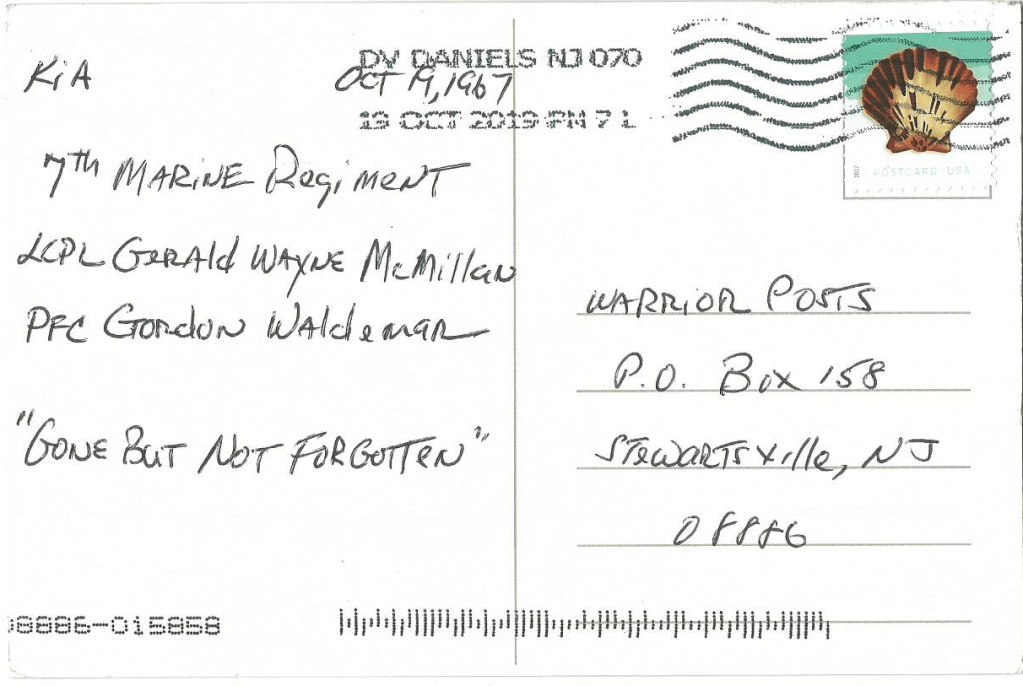 DV DANIELS NJ 070
19 OCT 2019 PM 7 L
2017
POSTCARD USA
KiA Oct 19, 1967
7th MARINE Regiment
LCPL Gerald WAYNE McMillan
PFC Gordon Waldemar
"GONE But Not Forgotten"
WARRIOR POSTS
P.O. Box 158
Stewartsville, NJ
08886
08886-015858